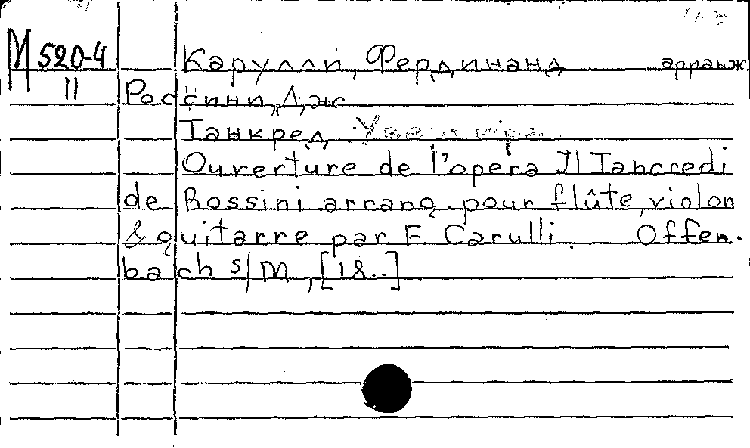 М 520-4 Карулли, Фердинанд арранж
II Россини, Дж
Танкред
Ouverture de l'opera Il Tancredi
de Rossini arrang. pour flûte, violon
& guitarre par F. Carulli. Offen.
bach s/M, [18..]